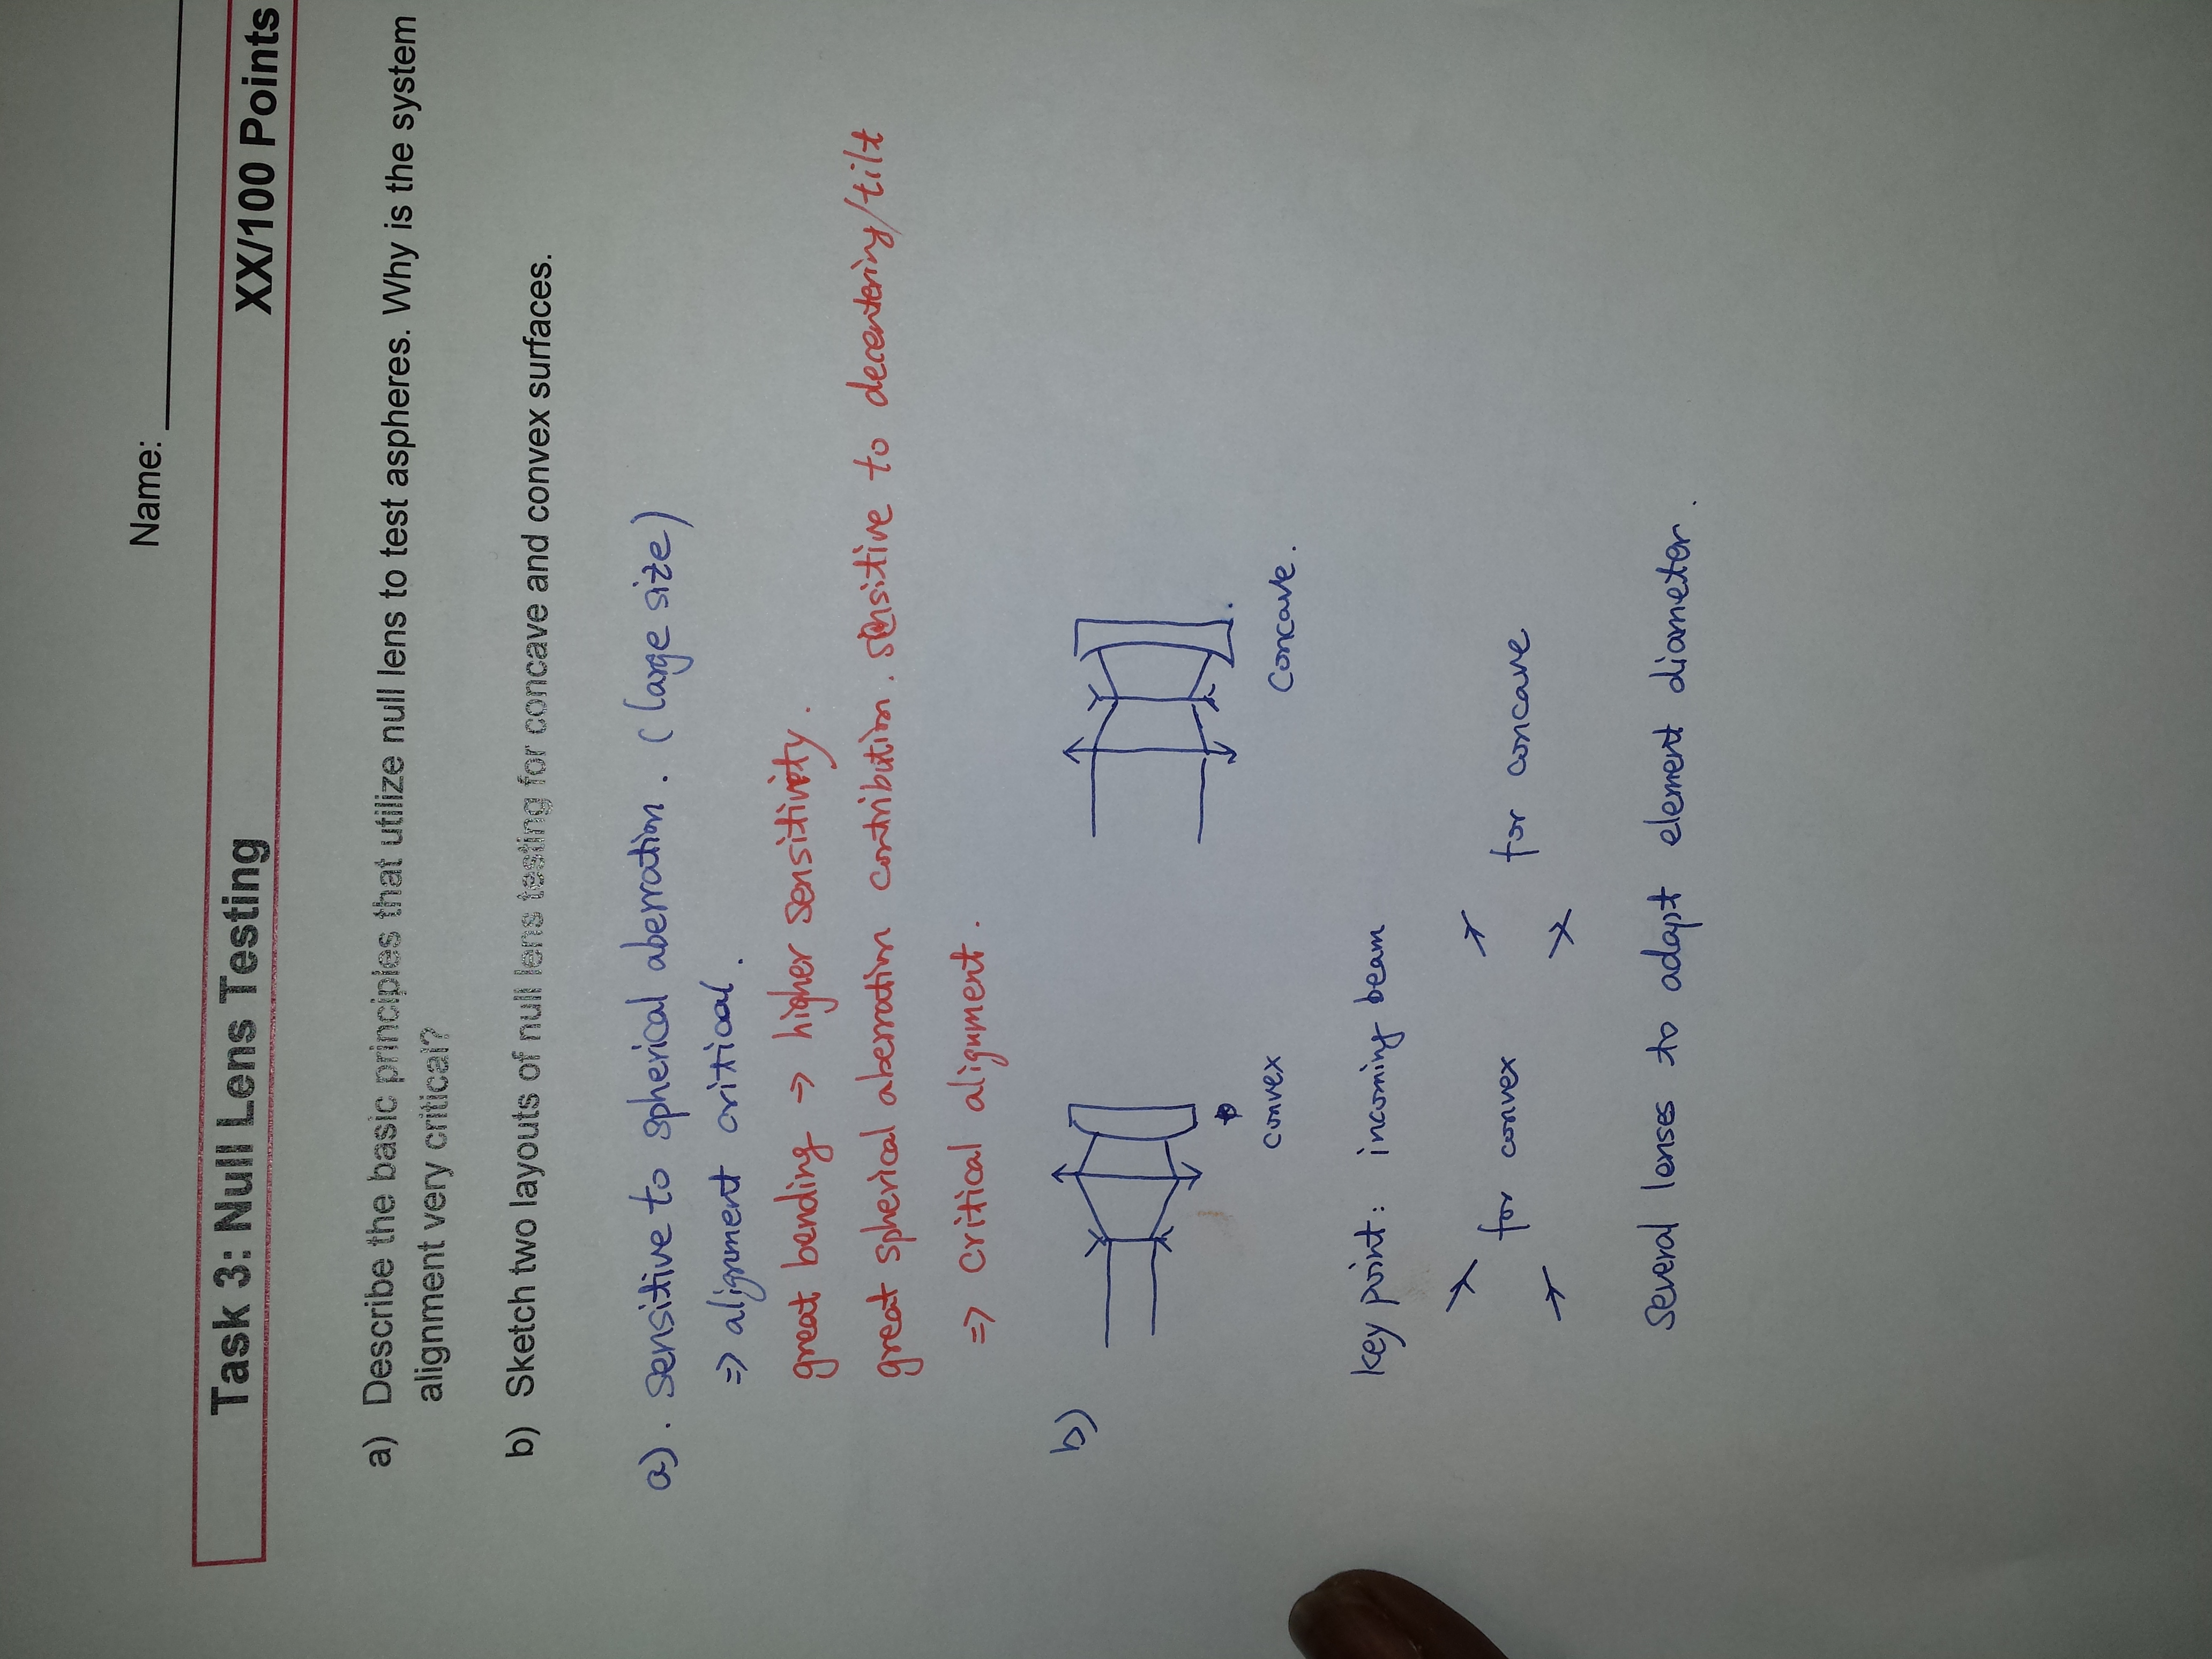 Name:
Task 3: Null Lens Testing XX/100 Points
a) Describe the basic principles that utilize null lens to test aspheres. Why is the system
alignment very critical?
b) Sketch two layouts of null lens testing for concave and convex surfaces.
a). sensitive to spherical aberration. (large size)
=> alignment critical.
great bending → higher sensitivity.
great spherical aberration contribution. sensitive to decentering/tilt
=> critical alignment.
b)
convex concave.
key point: incoming beam
for convex for concave
several lenses to adapt element diameter.